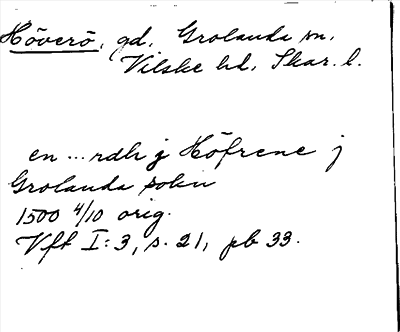 Höverö, gd, Grolanda sn,
Vilske hd, Skar. l.
en ... rdh j Höfrene j
Grolanda sokn
1500 4/10 orig.
Vft I:3, s. 21, pb 33.